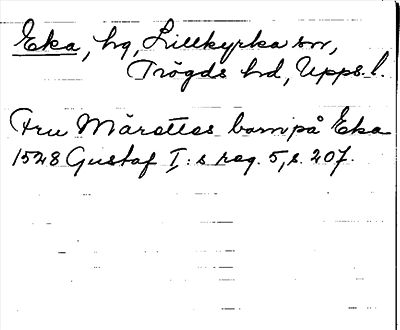 Eka, hg, Lillkyrka sn,
Trögds hd, Upps. l.
Fru Märettes barn på Eka
1528 Gustaf I:s reg. 5, s. 207.